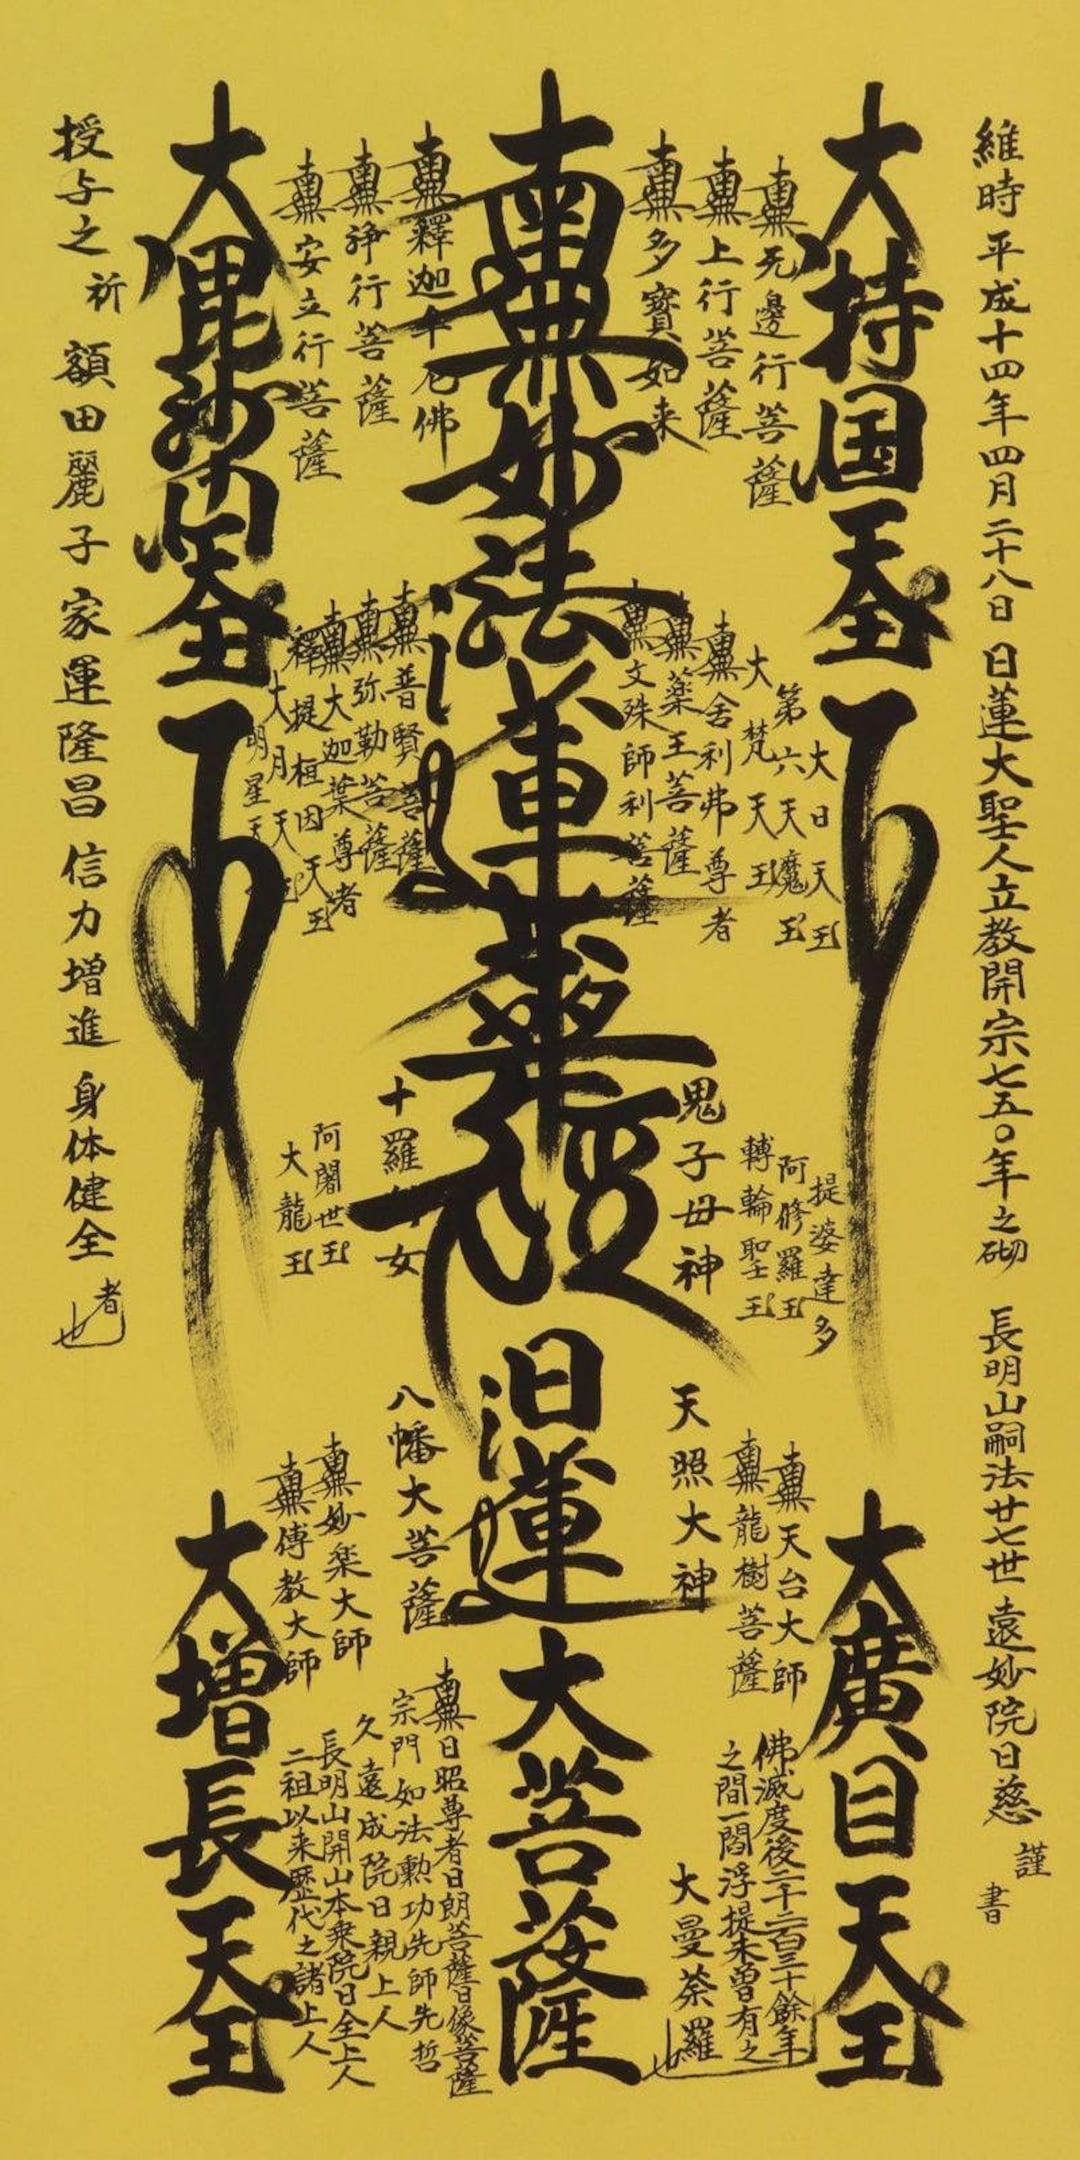 維時平成十四年四月二十八日 日蓮大聖人立教開宗七五〇年之砌 長明山嗣法廿七世 遠妙院日慈 謹書
大持国天王
大廣目天王
南無无邊行菩薩
南無上行菩薩
南無多寶如来
南無妙法蓮華経
日蓮大菩薩
南無釋迦牟尼佛
南無浄行菩薩
南無安立行菩薩
大毘沙門天王
大増長天王
大日天王
第六天魔王
大梵天王
南無舎利弗尊者
南無薬王菩薩
南無文殊師利菩薩
南無普賢菩薩
南無弥勒菩薩
南無大迦葉尊者
釋提桓因天王
大月天王
明星天
提婆達多
阿修羅王
轉輪聖王
鬼子母神
十羅刹女
阿闍世王
大龍王
南無天台大師
南無龍樹菩薩
天照大神
八幡大菩薩
南無妙楽大師
南無傳教大師
佛滅度後二千二百三十餘年
之間一閻浮提未曽有之
大曼荼羅也
南無日昭尊者日朗菩薩日像菩薩
宗門如法勲功先師先哲
久遠成院日親上人
長明山開山本衆院日全上人
二祖以来歴代之諸上人
授与之 祈 額田麗子 家運隆昌 信力増進 身体健全者也